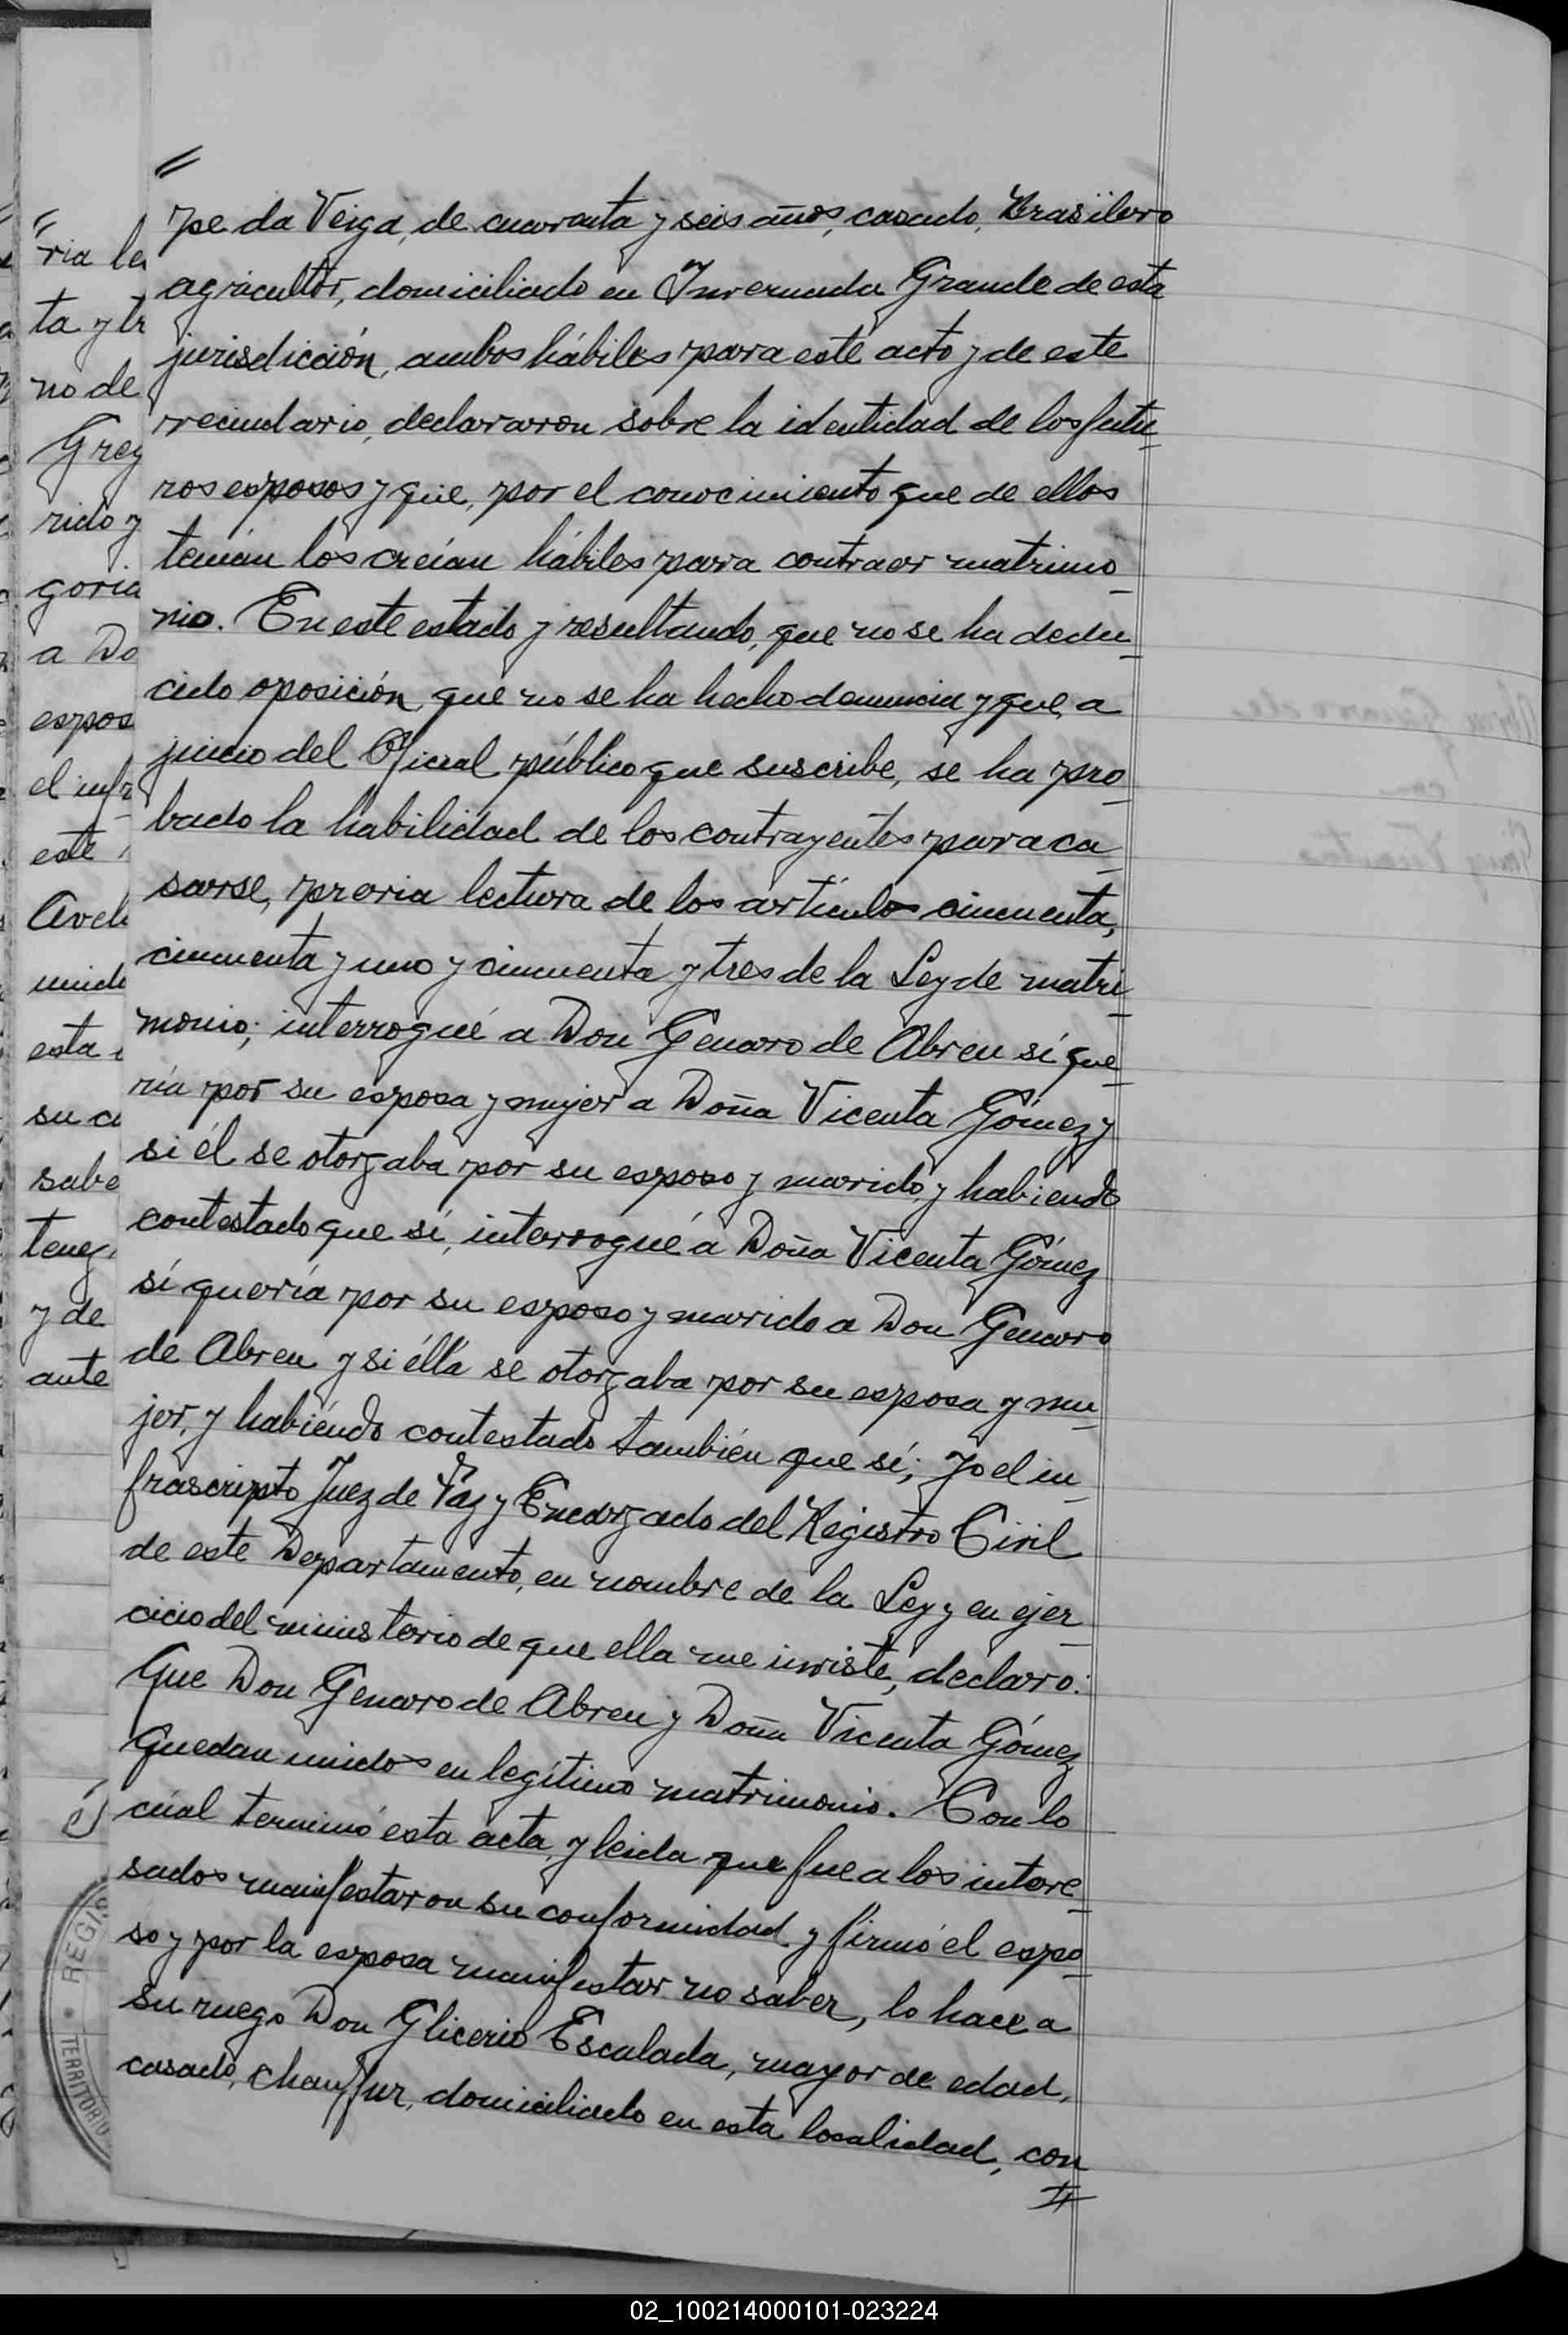 "
pe da Veiga, de cuarenta y seis años, casado, Brasilero
agricultor, domiciliado en Invernada Grande de esta
jurisdicción, ambos hábiles para este acto y de este
vecindario, declararon sobre la identidad de los futu_
ros esposos y que, por el conocimiento que de ellos
tenían los creían hábiles para contraer matrimo_
nio. En este estado y resultando, que no se ha dedu_
cido oposición, que no se ha hecho denuncia y que, a
juicio del Oficial público que suscribe, se ha pro_
bado la habilidad de los contrayentes para ca_
sarse, previa lectura de los artículos cincuenta,
cincuenta y uno y cincuenta y tres de la Ley de matri_
monio; interrogué a Don Genaro de Abreu sí que_
ría por su esposa y mujer a Doña Vicenta Gómez y
si él se otorgaba por su esposo y marido, y habiendo
contestado que sí, interrogué a Doña Vicenta Gómez
sí quería por su esposo y marido a Don Genaro
de Abreu y si élla se otorgaba por su esposa y mu_
jer, y habiendo contestado también que sí; Yo el in_
frascripto Juez de Paz y Encargado del Registro Civil
de este Departamento, en nombre de la Ley y en ejer_
cicio del ministerio de que ella me inviste, declaro:
Que Don Genaro de Abreu y Doña Vicenta Gómez
Quedan unidos en legítimo matrimonio. Con lo
cúal terminó esta acta, y leida que fue a los intere_
sados manifestaron su conformidad y firmó el espo_
so y por la esposa manifestar no saber, lo hace a
su ruego Don Glicerio Escalada, mayor de edad,
casado, chauffur, domiciliado en esta localidad, con
"
"
ria le
ta y tr
no de
Greg
rido y
goria
a Do
espos
el infr
este
Avel
unido
esta
su c
sabe
teng
y de
ante
REGIS
TERRITORIO
02_100214000101-023224